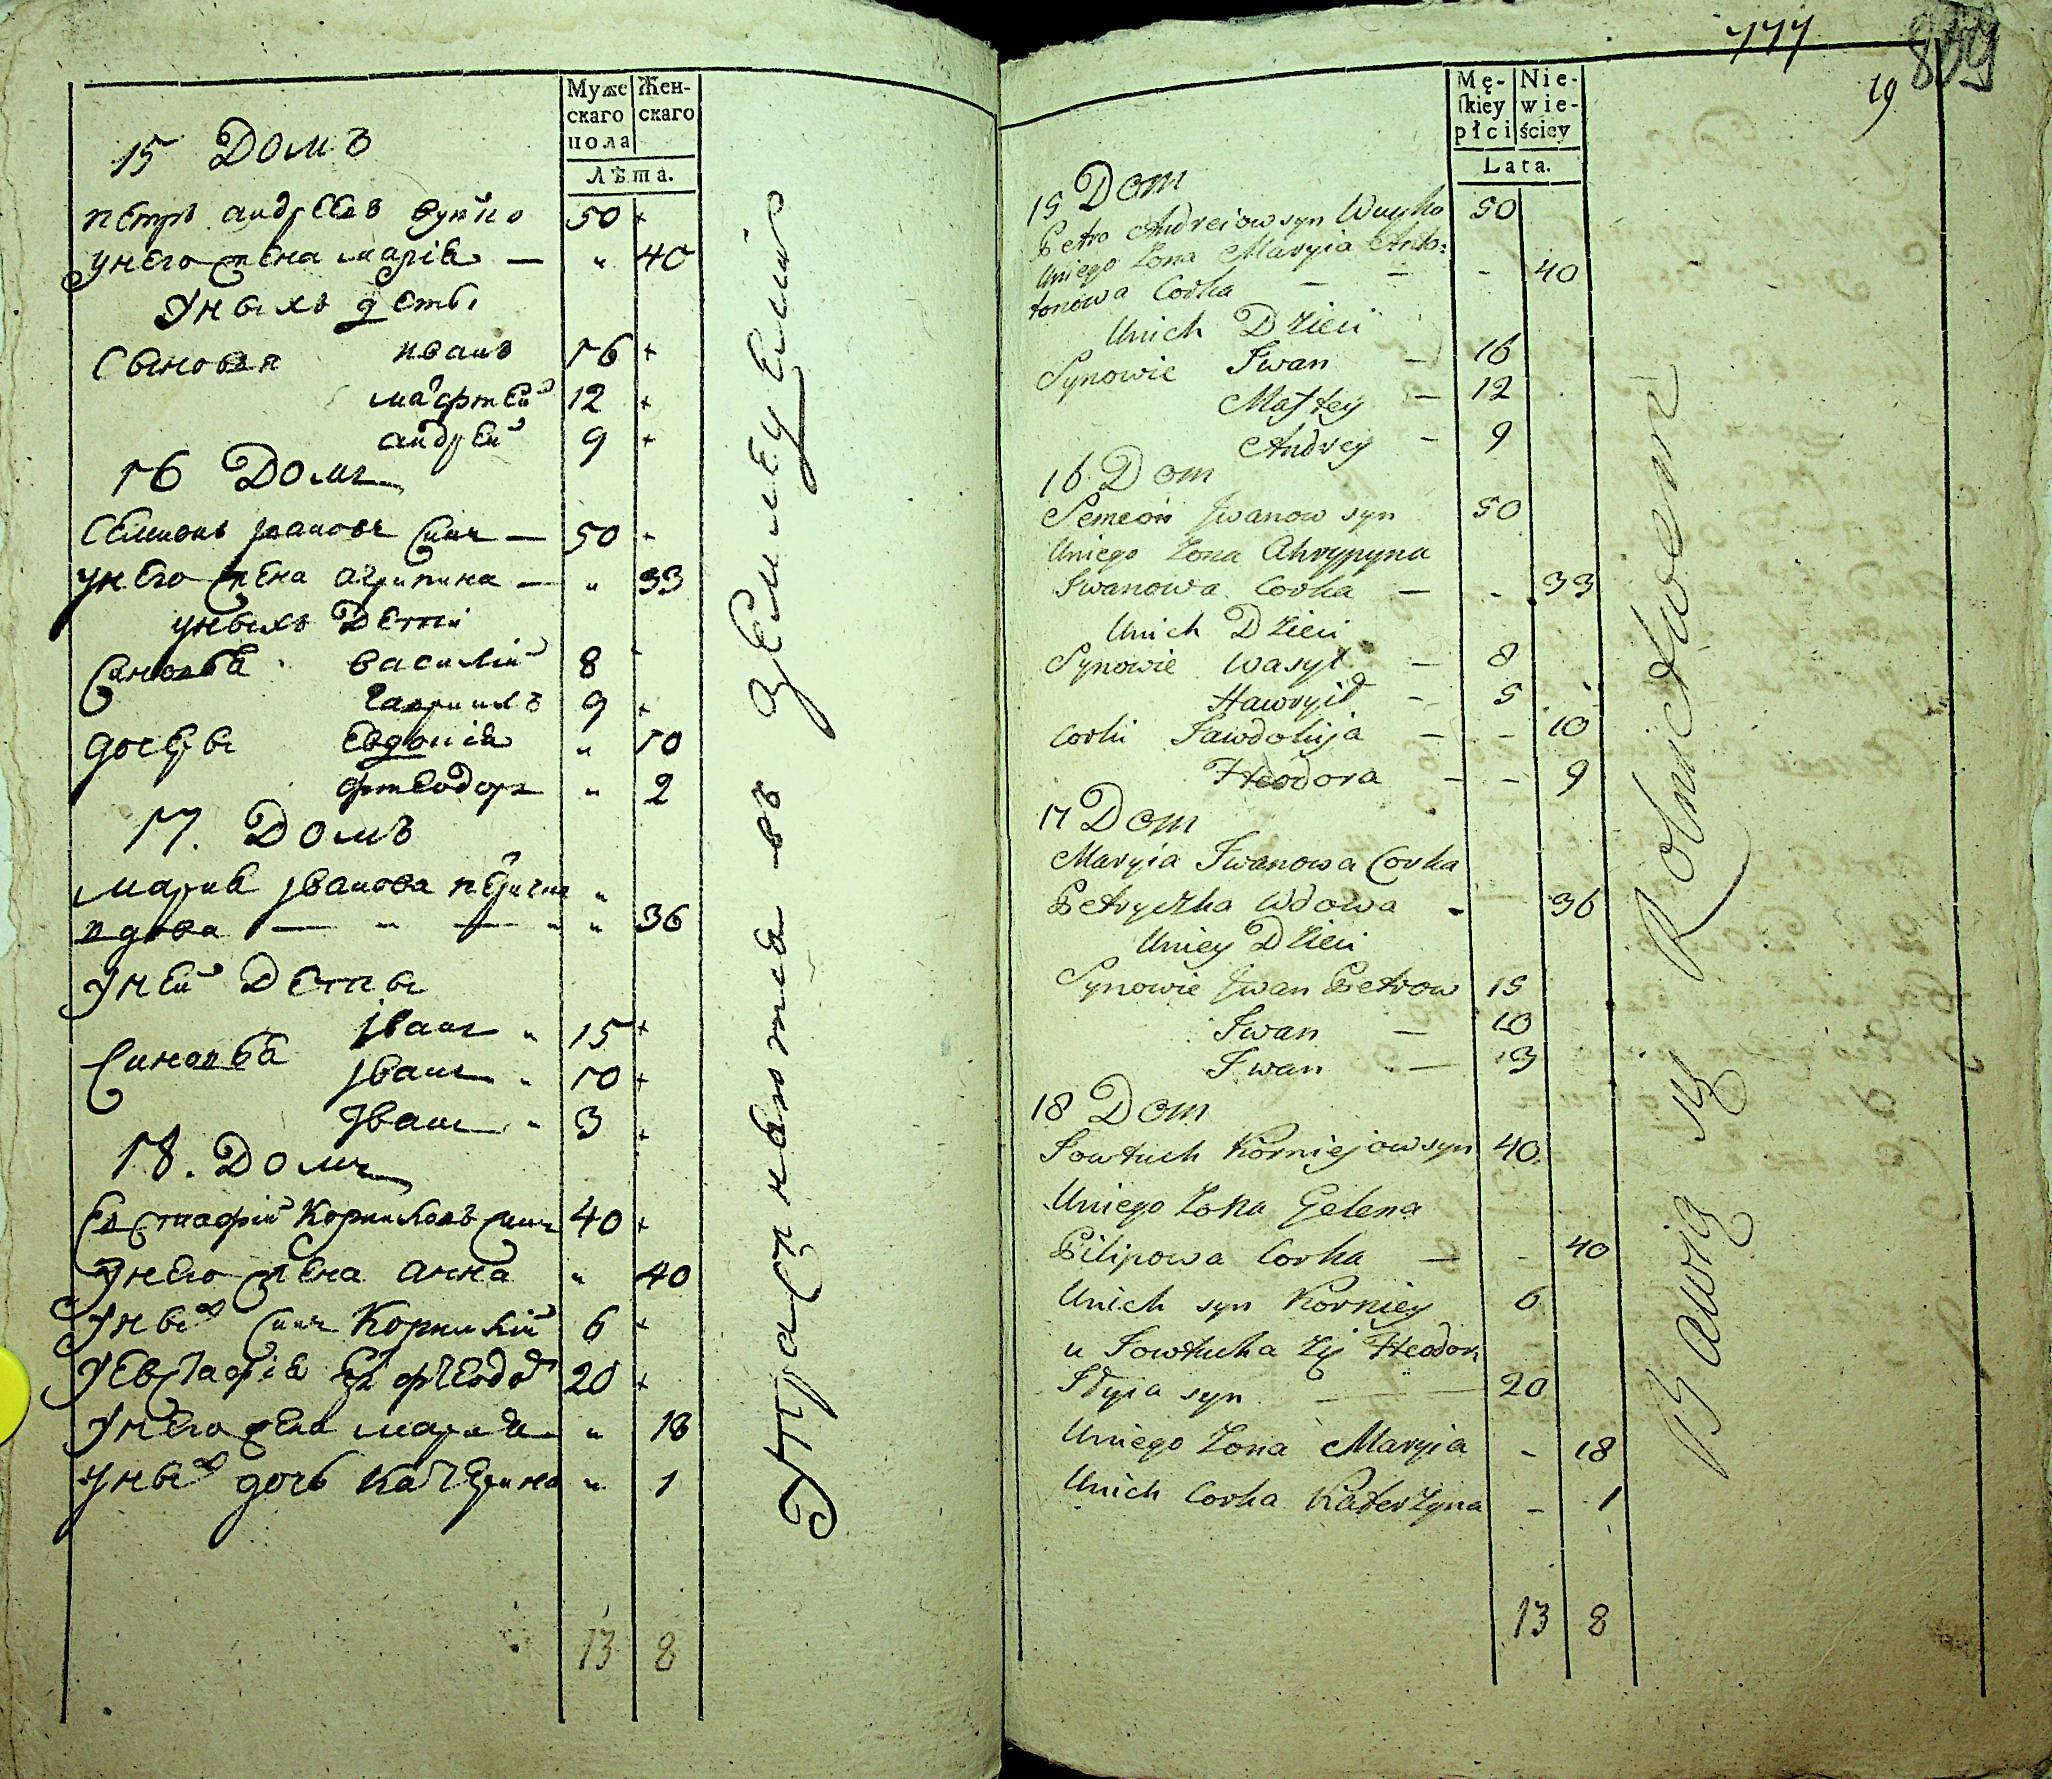 Муже
скаго
пола
Жен-
скаго
Лѣта.
15 Домъ
петръ андреевъ вуйко 50 +
унего жена марія — " 40
Уныхъ деты
Сынове иванъ 16 +
мафтей 12 +
андрей 9 +
16 Домъ
Семионъ Ивановъ синъ — 50 +
унего жена агрипина — " 33
уныхъ Дети
Синовья василій 8 -
гавриилъ 9 +
дочеры Евдокія " 10
фтеодора " 2
17. Домъ
мария Иванова "
вдова — " — " " 36
Уней Деты
Иванъ " 15 +
Синовья Иванъ " 10 +
Иванъ " 3 +
18. Домъ
Евстафій Корниловъ синъ 40 +
Унего жена анна " 40
Уных синъ Корнилій 6 +
Уевстафія фтеодор 20 +
Унего жена мария " 18
Уных дочь Катерина " 1
13 8
Упражняются въ земледелии
777
899
19
Mę-
skiey
płci
Nie-
wie-
ściey
Lata.
15 Dom
Petro Andreiow syn Wuyko 50
Uniego Zona Maryia Anto:
tonowa Corka — — - 40
Unich Dzieci
Synowie Iwan — 16
Mastey — 12
Andrey — 9
16 Dom
Semeon Iwanow syn 50
Uniego Zona Ahrypyna
Iwanowa Corka — - 33
Unich Dzieci
Synowie Wasyl — 8
Hawryił — 5
Corki Jawdokija — - 10
Heodora — - 9
17 Dom
Maryia Iwanowa Corka
Petryczka Wdowa - 36
Uniey Dzieci
Synowie Iwan Petrow 15
Iwan — 10
Iwan — 13
18 Dom
Jowtuch Korniejow syn 40
Uniego Zona Helena
Pilipowa Corka — - 40
Unich syn Korniey 6
u Jowtucha Zij Heodor
syn — — 20
Uniego Zona Maryia - 18
Unich Corka Katerzyna - 1
13 8
Bawią się Rolnictwem